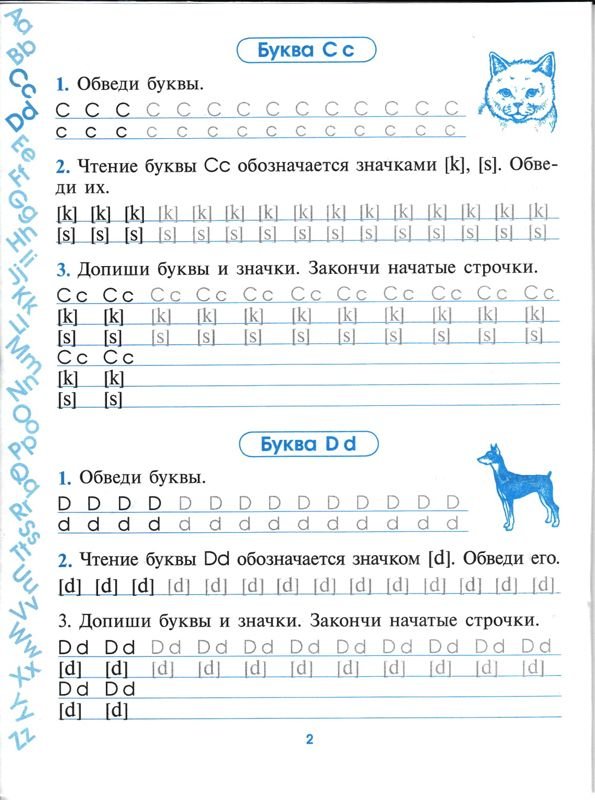 Aa
Bb
Cc
Dd
Ee
Ff
Gg
Hh
Ii
Jj
Kk
Ll
Mm
Nn
Oo
Pp
Qq
Rr
Ss
Tt
Uu
Vv
Ww
Xx
Yy
Zz
Буква C c
1. Обведи буквы.
C C C C C C C C C C C C C C
c c c c c c c c c c c c c c
2. Чтение буквы Cc обозначается значками [k], [s]. Обве-
ди их.
[k] [k] [k] [k] [k] [k] [k] [k] [k] [k] [k] [k] [k] [k] [k]
[s] [s] [s] [s] [s] [s] [s] [s] [s] [s] [s] [s] [s] [s] [s]
3. Допиши буквы и значки. Закончи начатые строчки.
C c C c C c C c C c C c C c C c C c C c C c
[k] [k] [k] [k] [k] [k] [k] [k] [k] [k] [k]
[s] [s] [s] [s] [s] [s] [s] [s] [s] [s] [s]
C c C c
[k] [k]
[s] [s]
Буква D d
1. Обведи буквы.
D D D D D D D D D D D D D D
d d d d d d d d d d d d d d
2. Чтение буквы Dd обозначается значком [d]. Обведи его.
[d] [d] [d] [d] [d] [d] [d] [d] [d] [d] [d] [d] [d] [d]
3. Допиши буквы и значки. Закончи начатые строчки.
D d D d D d D d D d D d D d D d D d D d D d
[d] [d] [d] [d] [d] [d] [d] [d] [d] [d] [d]
D d D d
[d] [d]
2